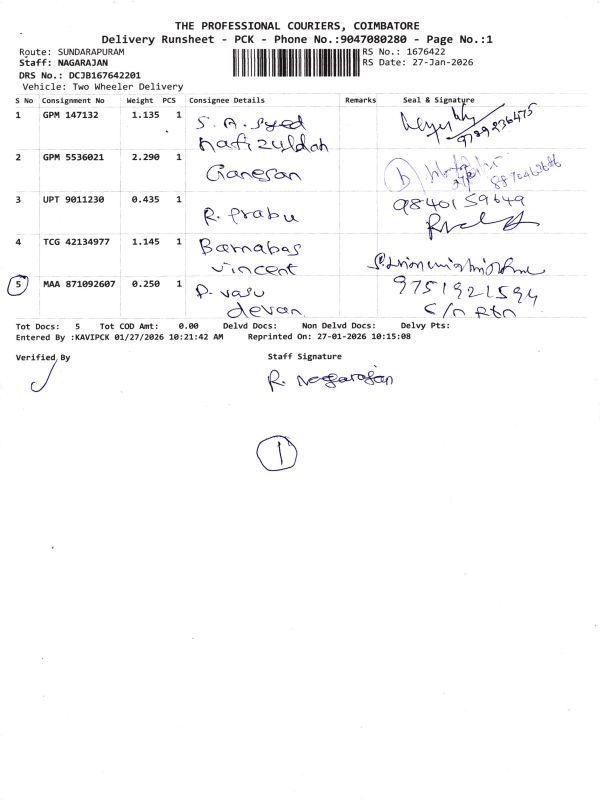 THE PROFESSIONAL COURIERS, COIMBATORE
Delivery Runsheet - PCK - Phone No.:9047080280 - Page No.:1
Route: SUNDARAPURAM RS No.: 1676422
Staff: NAGARAJAN RS Date: 27-Jan-2026
DRS No.: DCJB167642201
Vehicle: Two Wheeler Delivery
S No Consignment No Weight PCS Consignee Details Remarks Seal & Signature
1 GPM 147132 1.135 1 S. A. Syed
9789236475
2 GPM 5536021 2.290 1 Ganesan
3 UPT 9011230 0.435 1 R. Prabu 9840159649
4 TCG 42134977 1.145 1 Barnabas
vincent
5 MAA 871092607 0.250 1 P. vasu 9751921594
devan c/n Rtn
Tot Docs: 5 Tot COD Amt: 0.00 Delvd Docs: Non Delvd Docs: Delvy Pts:
Entered By :KAVIPCK 01/27/2026 10:21:42 AM Reprinted On: 27-01-2026 10:15:08
Verified By Staff Signature
R. Nagarajan
1